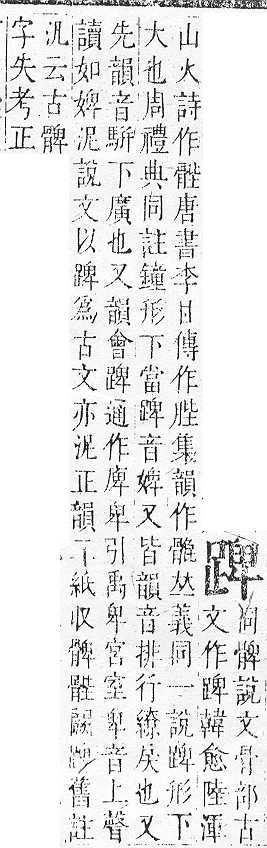 䠋同髀說文骨部古
文作䠋韓愈陸渾
山火詩作䯗唐書李甘傳作䏶集韻作𠀤義同一說䠋形下
大也周禮典同註鐘形下當䠋音婢又皆韻音排行繚戾也又
先韻音駢下廣也又韻會䠋通作庳卑引禹卑宮室卑音上聲
讀如婢泥說文以䠋爲古文亦泥正韻二紙收髀䯗闕䠋舊註
汎云古髀
字失考正